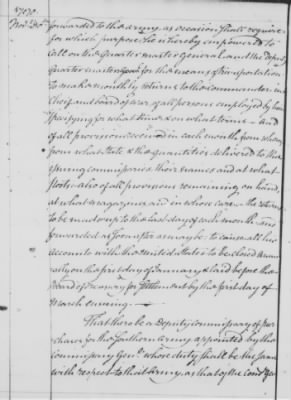 1780.
Novr. 30th.
forwarded to the army, as occasion shall require
for which purpose he is hereby empowered to
call on the Quarter master general and the Deputy
Quarter master for the means of transportation
To make monthly returns to the commander in
chief and board of war, of all persons employed by him
Specifying for what time & on what terms — and
of all provisions received in each month from whom
from what State & the quantities delivered to the
issuing commissaries their names and at what
Posts: also of all provisions remaining on hand,
at what magazines and in whose care — the returns
to be made up to the last day of each month and
forwarded as soon after as may be: to cause all his
accounts with the united States to be closed
on the first day of January & laid before the
Board of treasury for settlement by the first day of
March ensuing —
That there be a Deputy commissary of pur
chases for the Southern Army, appointed by the
commissary Genl. whose duty shall be the same
with respect to that Army, as that of the